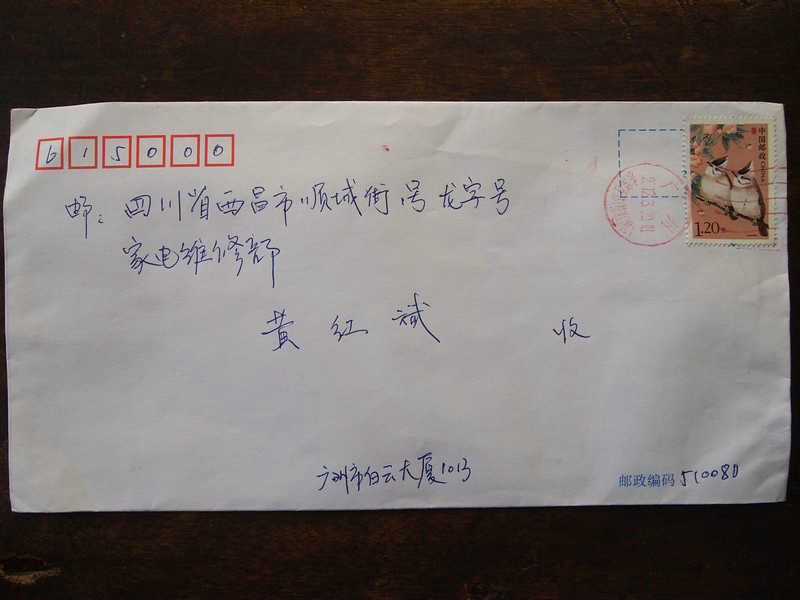 615000
中国邮政
CHINA
1.20
邮：四川省西昌市顺城街1号龙字号
家电维修部
黄红斌 收
广州市白云大厦1013
邮政编码 510080